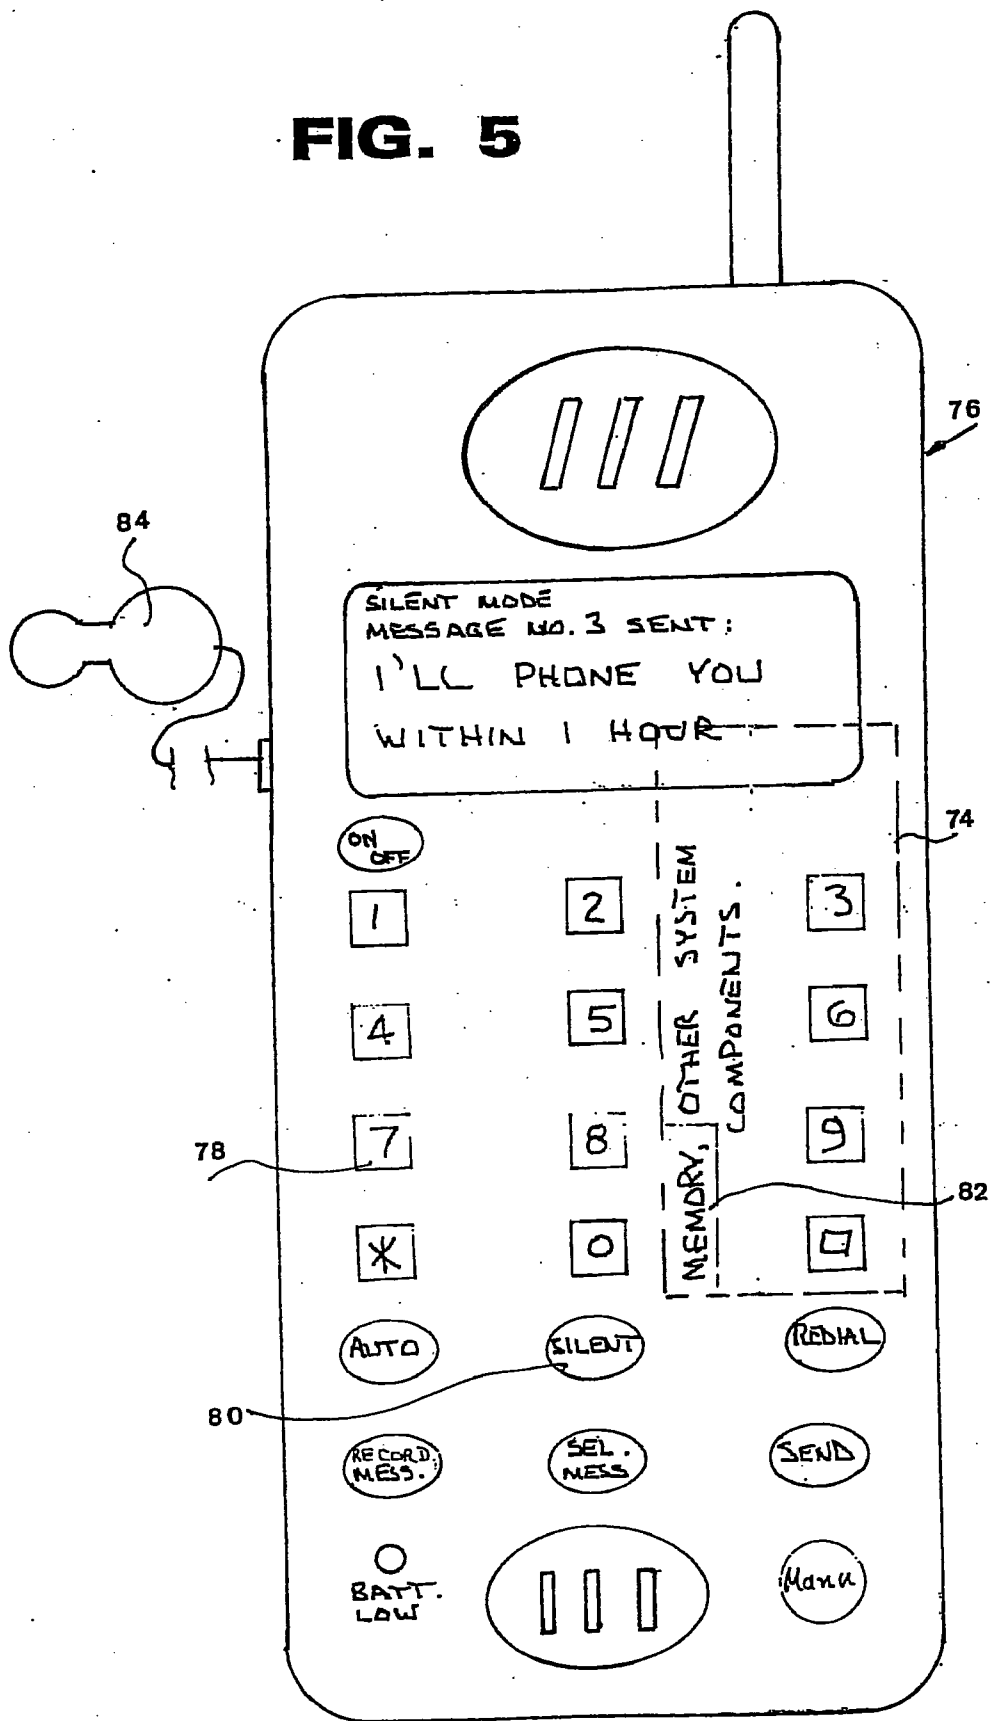 FIG. 5
76
84
SILENT MODE
MESSAGE NO. 3 SENT:
I'LL PHONE YOU
WITHIN 1 HOUR
74
ON
OFF
1 2 3
4 5 6
7 8 9
78
* 0
MEMORY, OTHER SYSTEM
COMPONENTS.
82
AUTO SILENT REDIAL
80
RECORD.
MESS.
SEL.
MESS
SEND
BATT.
LOW
Manu